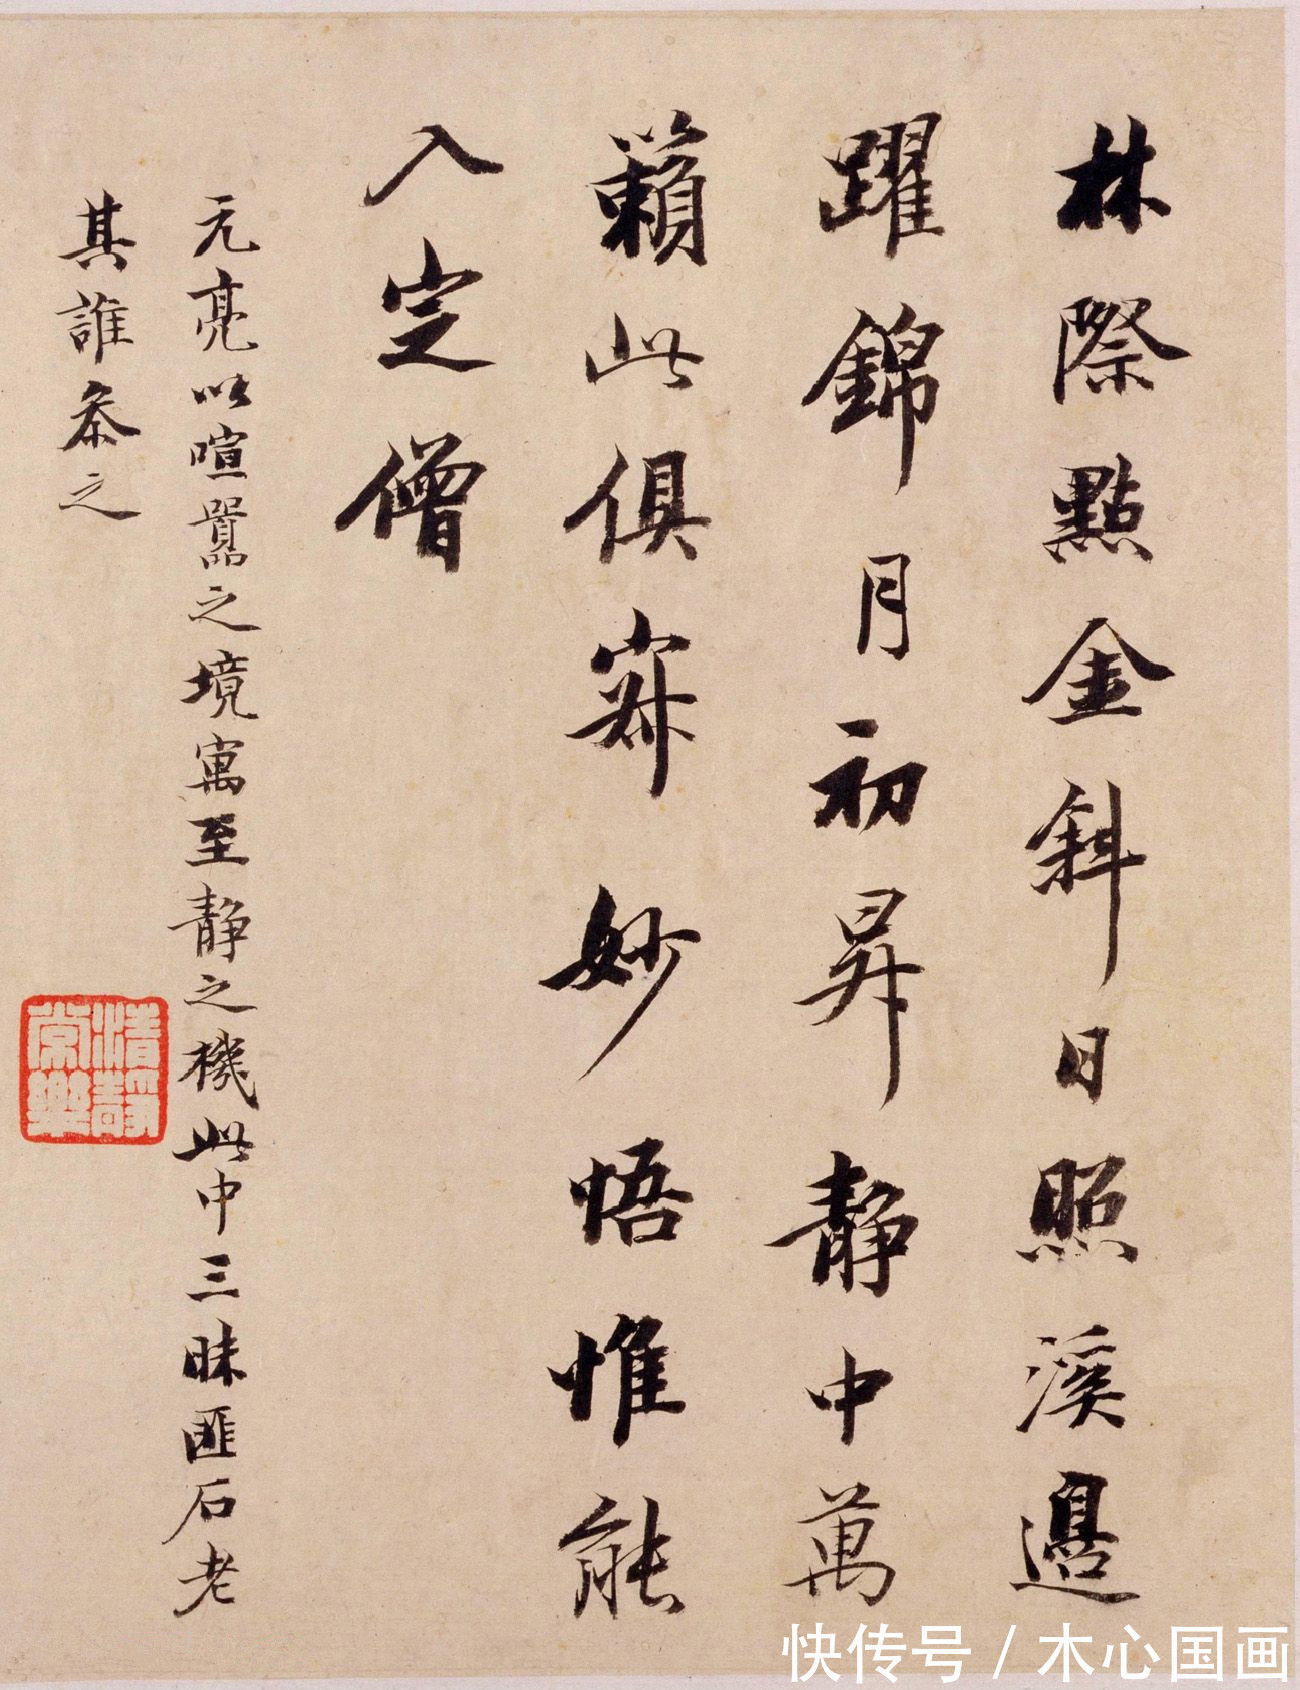 林際點金斜日照溪邊
躍錦月初昇靜中萬
籟此俱寂妙悟惟能
入定僧
元亮以喧囂之境寓至靜之機此中三昧匪石老
其誰参之
清靜常樂
快传号/木心国画